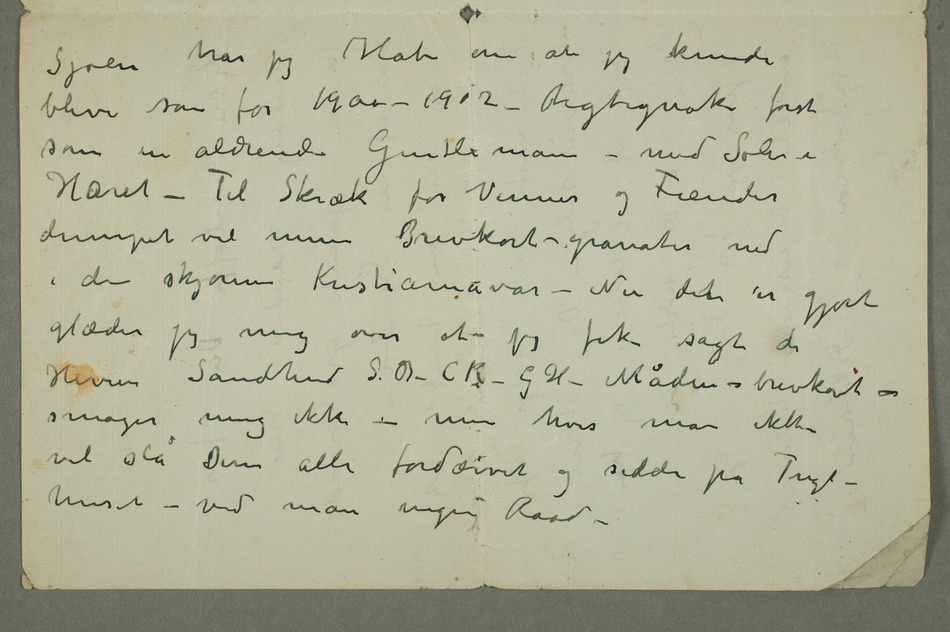 Sjøen har jeg Håb om at jeg kunde
blive som før 1900 – 1902 – Rigtignok først
som en aldrende Gentleman – med Sølv i
Håret – Til Skræk for Venner og Fiender
dumpet vel mine Brevkort-granater ned
i den skjønne Kristianiavår – Nu det er gjort
glæder jeg mig over at jeg fik sagt de
Herrer Sandhed S. B – C K – G H – Måden – brevkort –
smager mig ikke – men hvis man ikke
vil slå Dem alle fordærvet og sidde på Tugt-
huset – ved man ingen Raad –